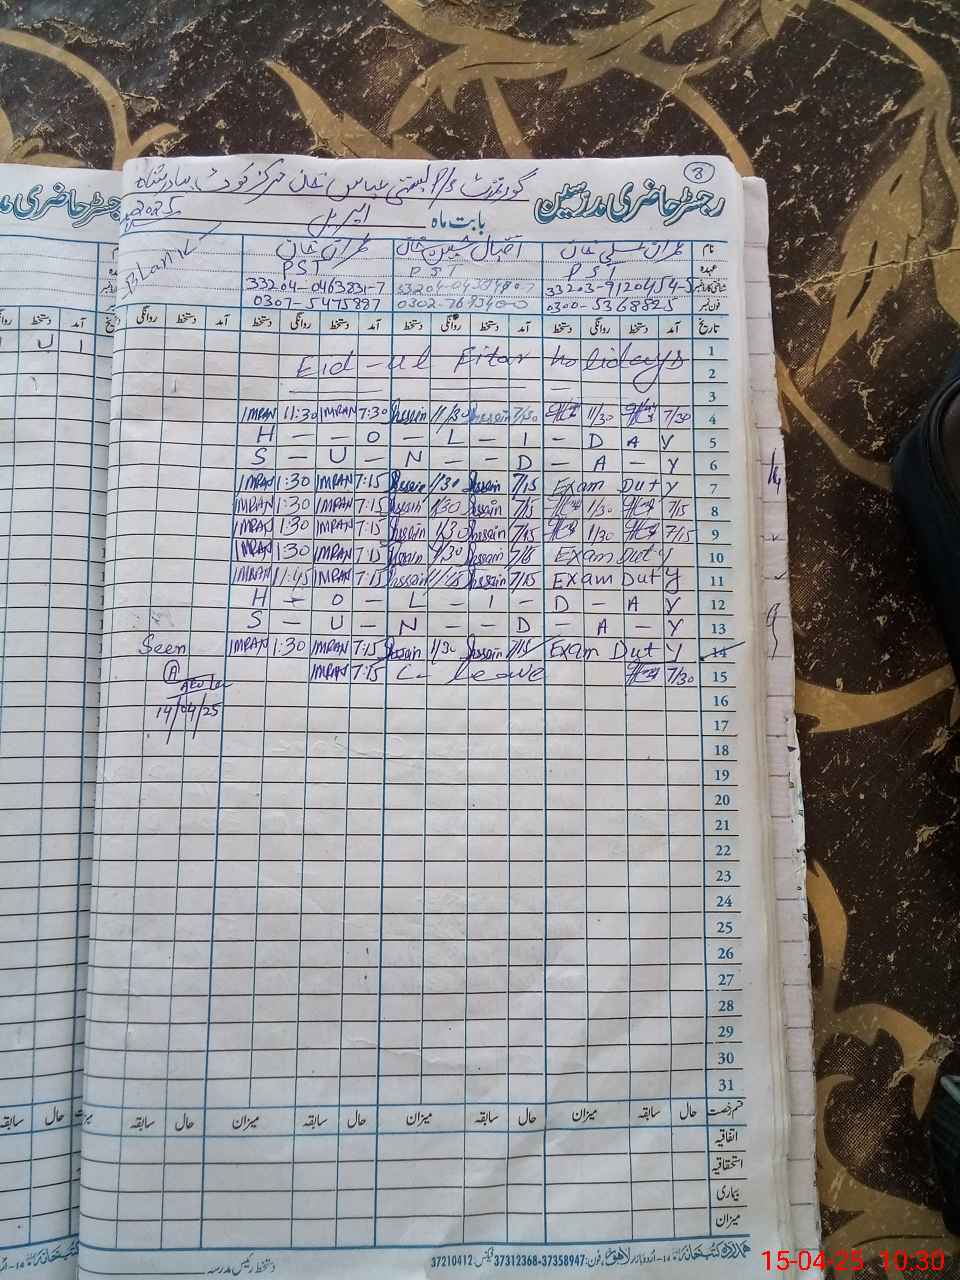 3
رجسٹر حاضری مدرسین
گورنمنٹ P/S بستی عباس خان مرکز کوٹ بہادر شاہ
بابت ماہ اپریل 2025
نام عمران علی خان اقبال حسین خان عمران خان Blank
عہدہ PST PST PST
شناختی کارڈ نمبر 33203-9120454-5 33204-0463831-7
فون نمبر 0300-5368825 0307-5475887
تاریخ آمد دستخط روانگی دستخط آمد دستخط روانگی دستخط آمد دستخط روانگی دستخط آمد دستخط روانگی
1
2 Eid-ul Fitar holidays
3
4 7/30 11/30 7/30 Hussain 11/30 Hussain 7:30 IMRAN 11:30 IMRAN
5 H - - O - L - I - D A Y
6 S - U - N - - D - A - Y
7 Exam Duty 7/15 Hussain 1/30 Hussain 7:15 IMRAN 1:30 IMRAN
8 7/15 1/30 7/15 Hussain 1/30 Hussain 7:15 IMRAN 1:30 IMRAN
9 7/15 1/30 7/15 Hussain 1/30 Hussain 7:15 IMRAN 1:30 IMRAN
10 Exam Duty 7/15 Hussain 1/30 Hussain 7:15 IMRAN 1:30 IMRAN
11 Exam Duty 7/15 Hussain 11/45 Hussain 7:15 IMRAN 11:45 IMRAN
12 H - O - L - I - D - A - Y
13 S - U - N - - D - A - Y
14 Exam Duty 7/15 Hussain 1/30 Hussain 7:15 IMRAN 1:30 IMRAN Seen
15 7/30 C- Leave 7:15 IMRAN
16
14/04/25
17
18
19
20
21
22
23
24
25
26
27
28
29
30
31
قسم رخصت حال سابقہ میزان حال سابقہ میزان حال سابقہ میزان حال سابقہ
اتفاقیہ
استحقاقیہ
بیماری
میزان
ہمدرد کتب خانہ اردو بازار لاہور فون: 37358947-37312368 فیکس 37210412
دستخط رئیس مدرسہ
15-04-25 10:30